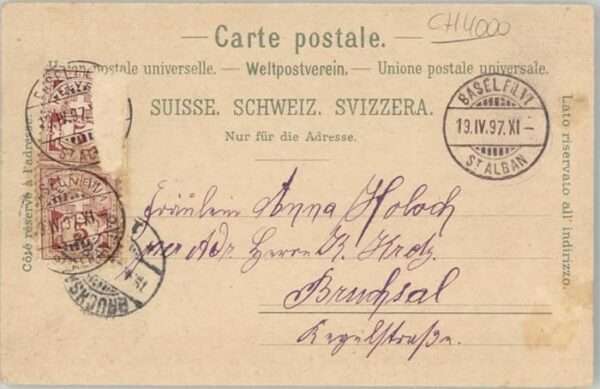 CH4000
— Carte postale. —
Union postale universelle. — Weltpostverein. — Unione postale universale.
SUISSE. SCHWEIZ. SVIZZERA.
Nur für die Adresse.
Côté réservé à l'adresse.
Lato riservato all' indirizzo.
BASEL FIL. VI
19.IV.97.XI–
ST ALBAN
IV.97.XI
ST ALBAN
BRUCHS
Fräulein Anna Holoch
per Adr. Herrn K. Krotz.
Bruchsal
Kegelstraße.